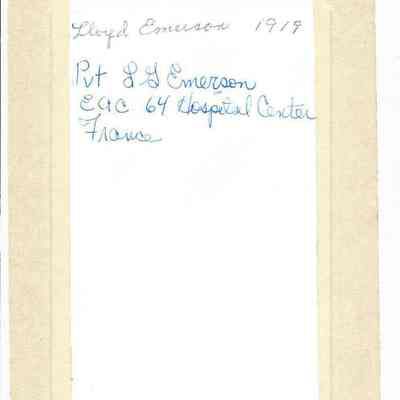 Lloyd Emerson 1919
Pvt L G Emerson
E&C 64 Hospital Center
France